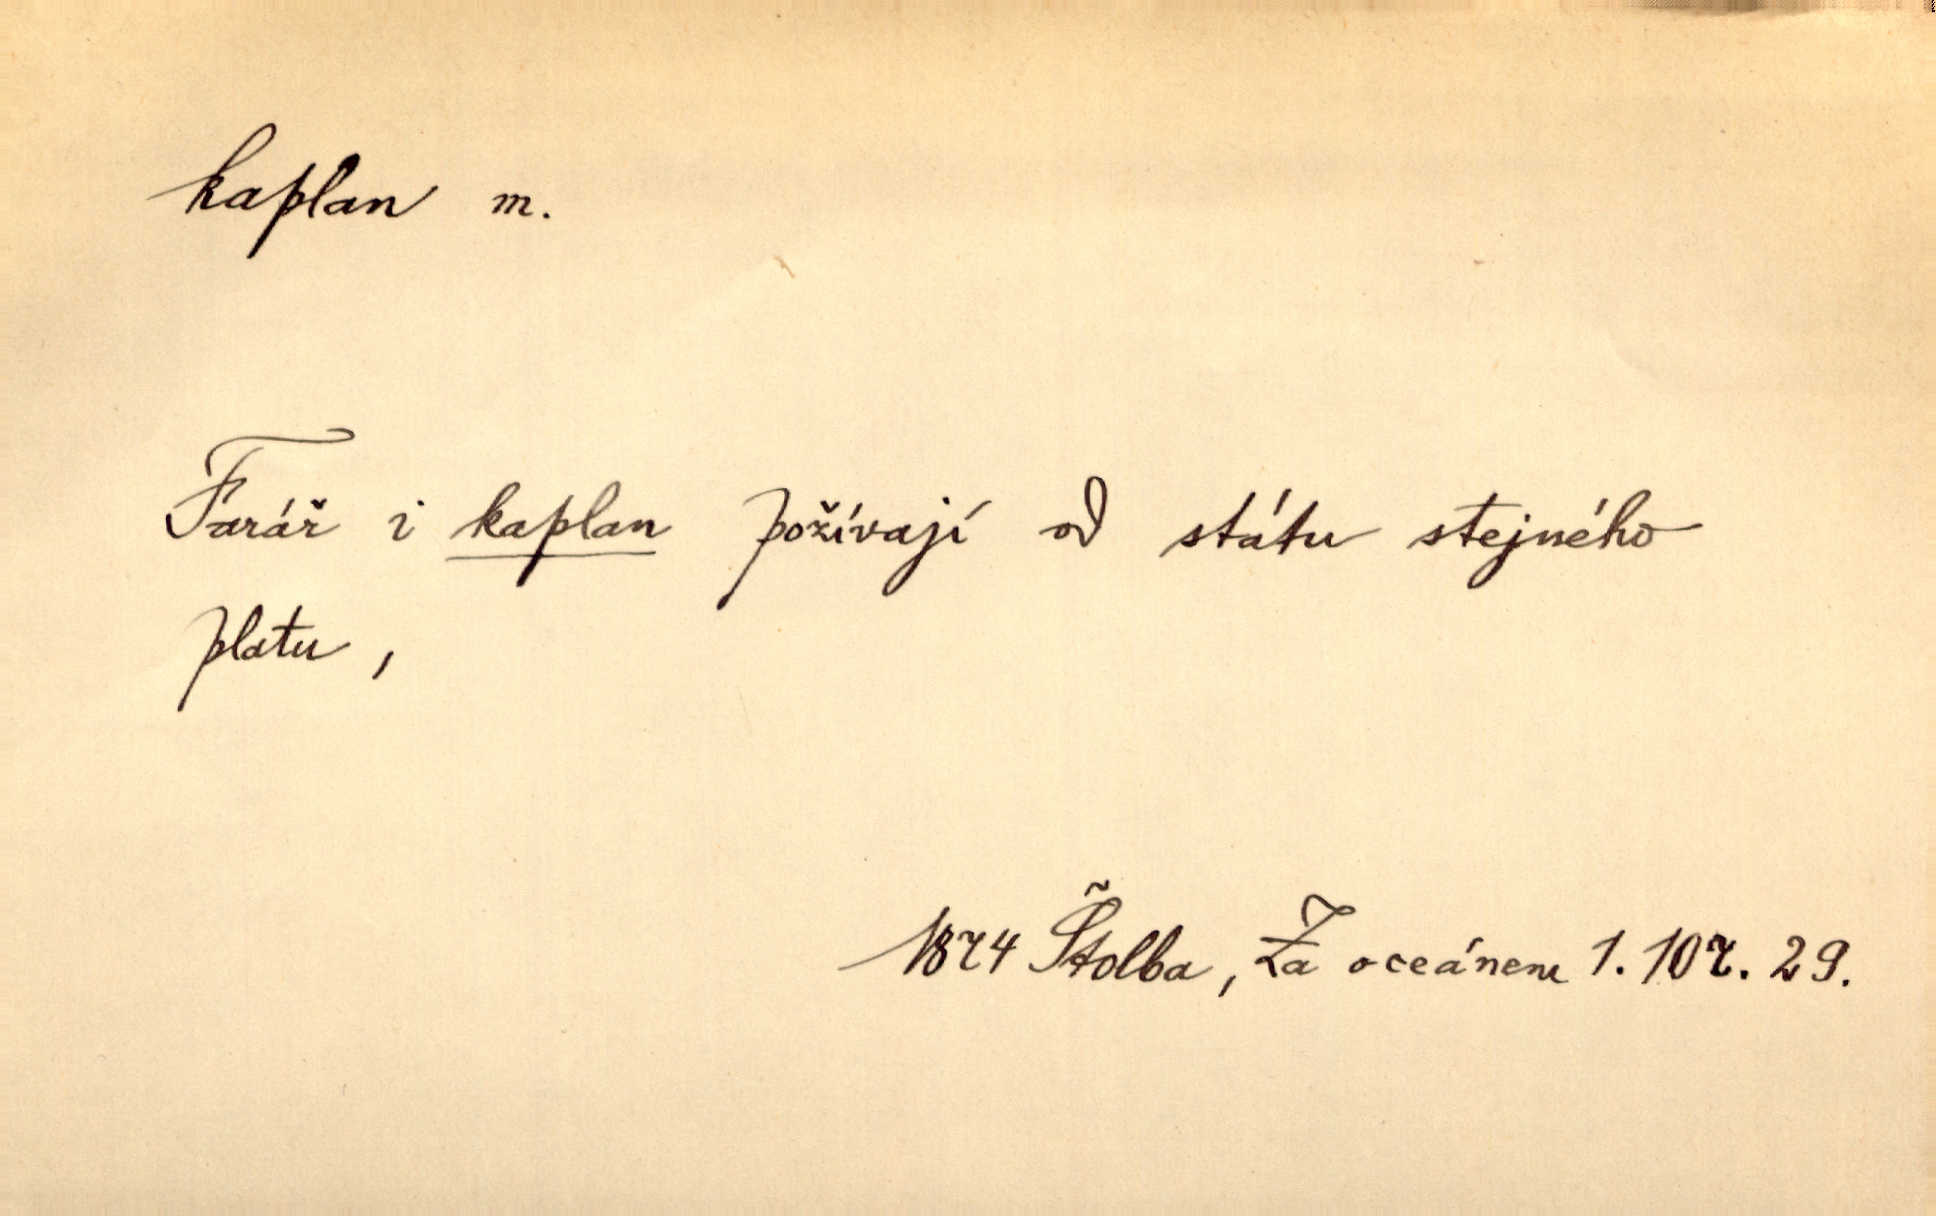 kaplan m.
Farář i kaplan požívají od státu stejného
platu,
1874 Štolba, Za oceánem 1. 107. 29.